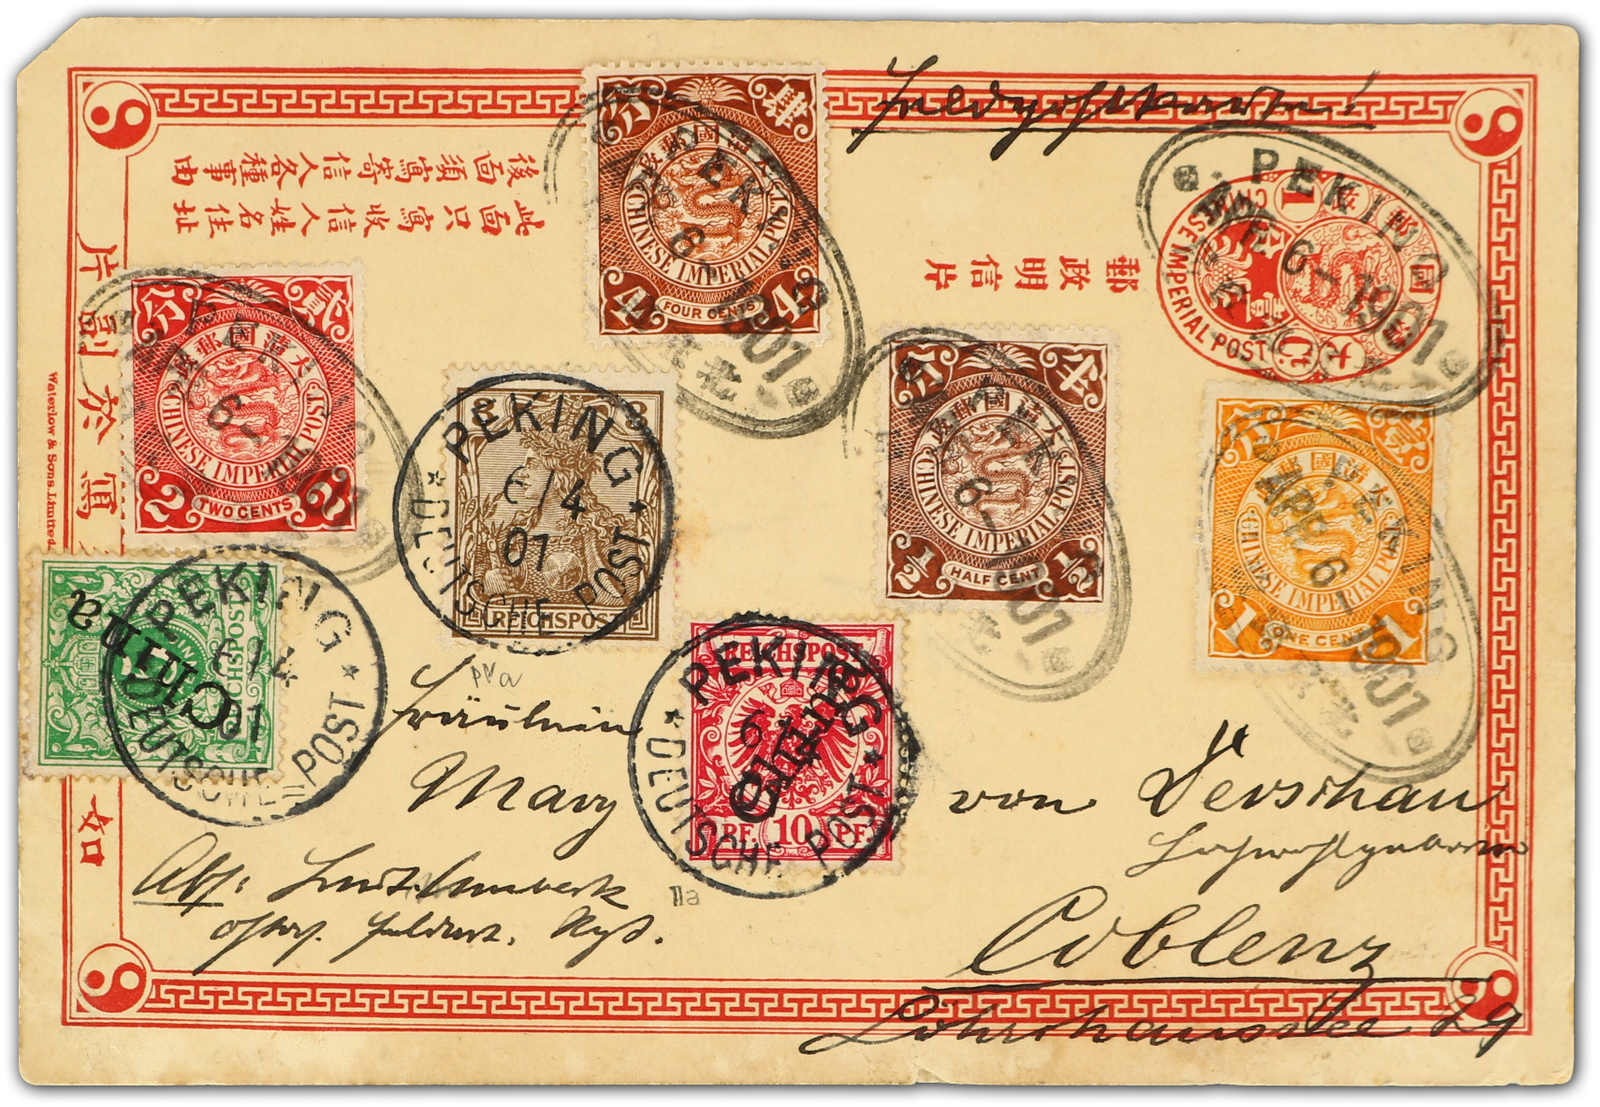 Feldpostkarte!
後面須寫寄信人各種事由
此面只寫收信人姓名住址
郵政明信片
PEKING
APR 6 - 1901
CHINESE IMPERIAL POST
1
大清國郵政
CHINESE IMPERIAL POST
4 FOUR CENTS 4
PEKING
大清國郵政
CHINESE IMPERIAL POST
2 TWO CENTS 2
PEKING
大清國郵政
CHINESE IMPERIAL POST
1/2 HALF CENT 1/2
CHINESE IMPERIAL POST
1 ONE CENT 1
PEKING
APR 6 1901
3 3
REICHSPOST
PEKING
6/4
01
DEUTSCHE POST
REICHSPOST
China
PEKING
6/4
01
DEUTSCHE POST
REICHSPOST
China
PF 10 PF
PEKING
6/4
DEUTSCHE POST
Waterlow & Sons. Limited.
片副於寫
如
Fräulein
Mary von Derschau
Hochwohlgeboren
Coblenz
Löhrchaussee 29
Abs:
IIa